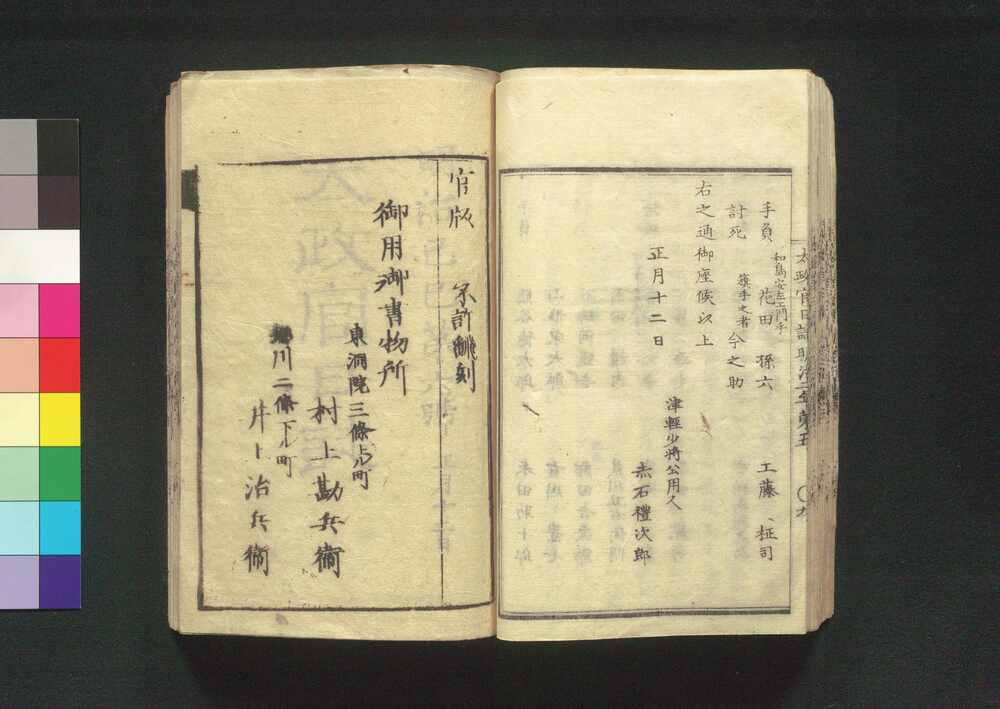 太政官日誌明治二年第五
〇九
手負 和島安左エ門手 花田 孫六 工藤 柾司
討死 籏手之者 今之助
右之通御座候以上
正月十二日
津輕少将公用人
赤石禮次郎
官版 不許翻刻
御用御書物所
東洞院三條上ル町
村上勘兵衞
堀川二條下ル町
井上治兵衞